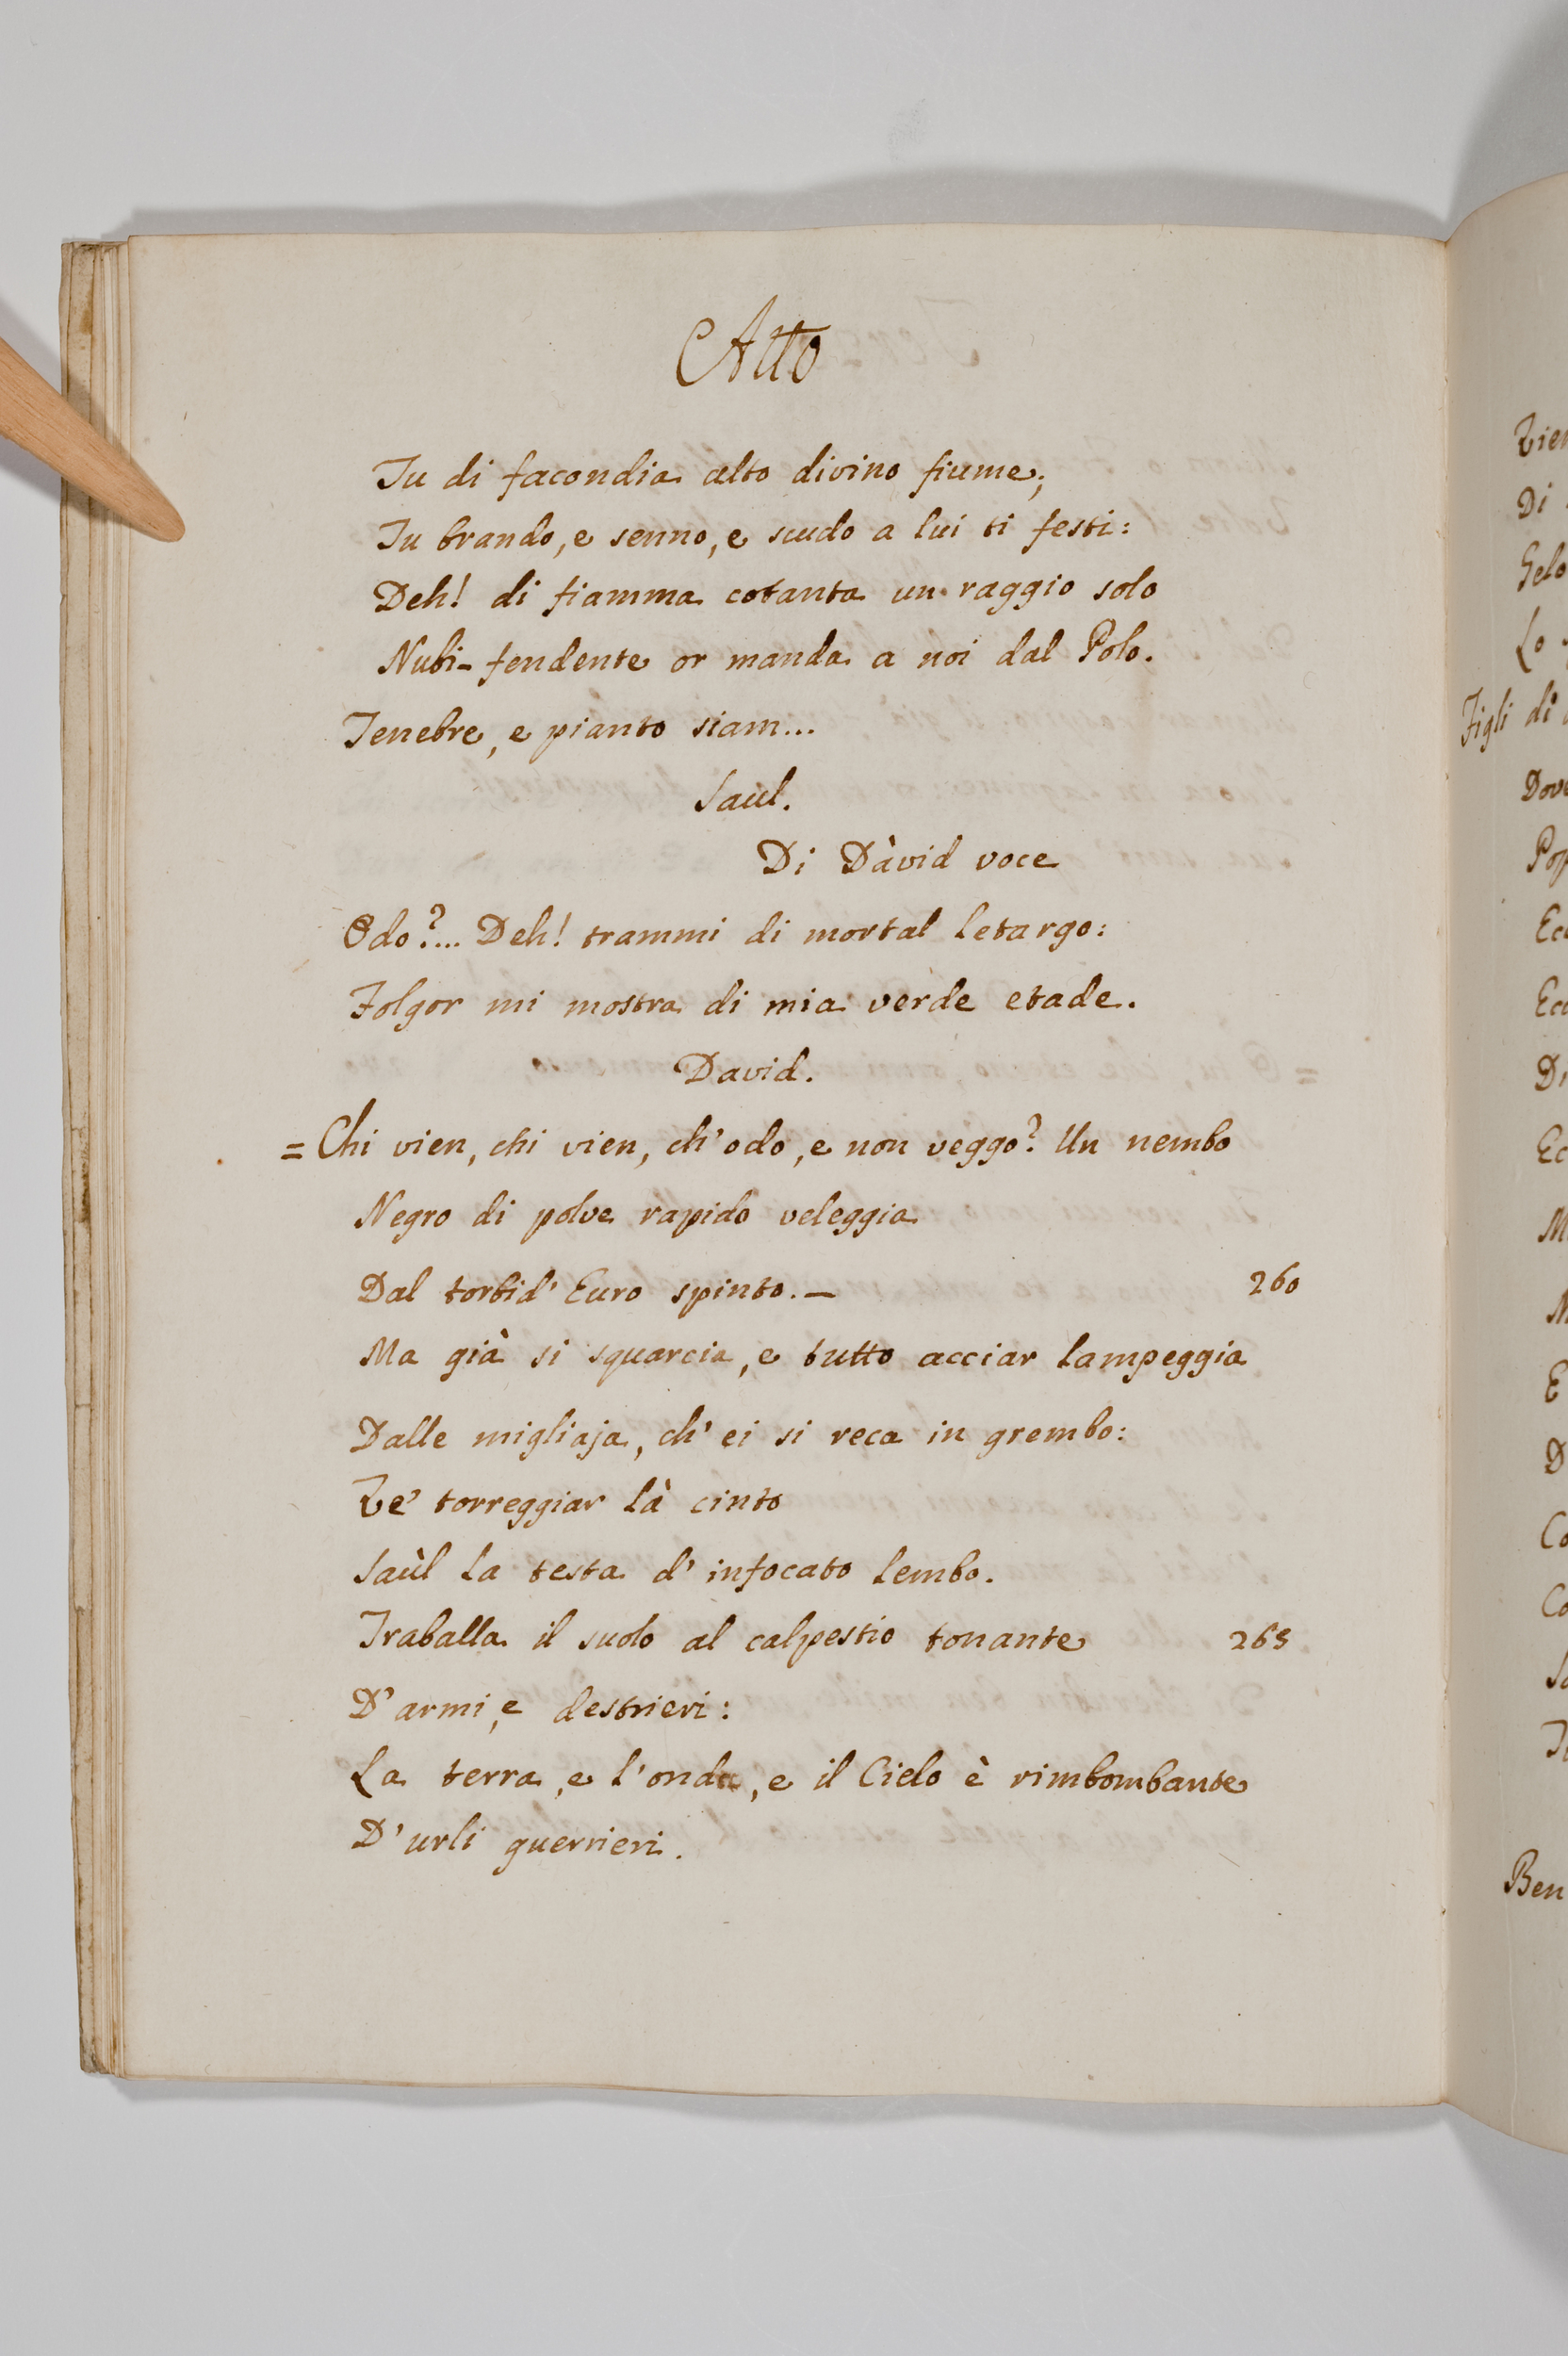 Atto
Tu di facondia alto divino fiume;
Tu brando, e senno, e scudo a lui ti festi:
Deh! di fiamma cotanta un raggio solo
Nubi-fendente or manda a noi dal Polo.
Tenebre, e pianto siam...
Saul.
Di Dàvid voce
Odo?... Deh! trammi di mortal letargo:
Folgor mi mostra di mia verde etade.
David.
= Chi vien, chi vien, ch'odo, e non veggo? Un nembo
Negro di polve rapido veleggia
Dal torbid' Euro spinto. — 260
Ma già si squarcia, e tutto acciar lampeggia
Dalle migliaja, ch' ei si reca in grembo:
Ve' torreggiar là cinto
Saùl la testa d' infocato lembo.
Traballa il suolo al calpestio tonante 265
D' armi, e destrieri:
La terra, e l'onda, e il Cielo è rimbombante
D' urli guerrieri.
Di
Gelo
Lo
Figli di
Ben